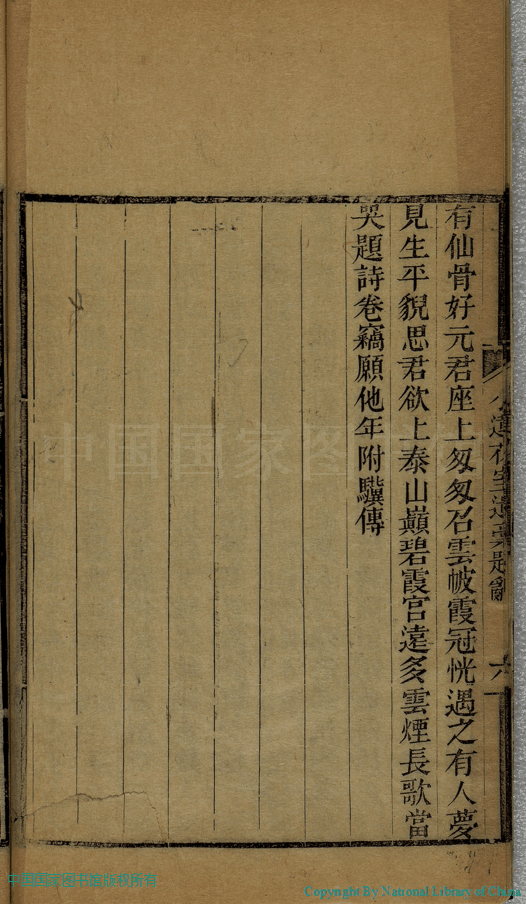 有仙骨好元君座上匆匆召雲帔霞冠恍遇之有人夢
見生平貌思君欲上泰山巔碧霞宮遠多雲煙長歌當
哭題詩卷竊願他年附驥傳
六
中国国家图
中国国家图书馆版权所有
Copyright By National Library of China